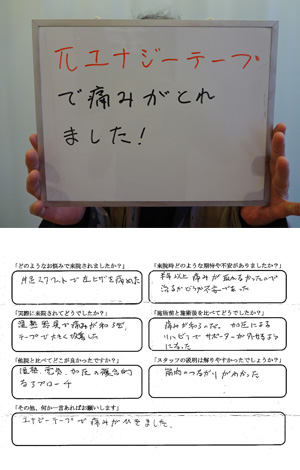 πエナジーテープ
で痛みがとれ
ました!
「どのようなお悩みで来院されましたか?」
片足スクワットで左ヒザを痛めた
「来院時どのような期待や不安がありましたか?」
半年以上痛みが取れなかったので
治るかどうか不安でまった
「実際に来院されてどうでしたか?」
温熱 電気で痛みが和らぎ、
テープで大きく改善した
「施術前と施術後を比べてどうでしたか?」
痛みが和らぎ、加圧による
リハビリでサポーターが外せるように
になった
「他院と比べてどこが良かったですか?」
温熱、電気、加圧の複合的
なアプローチ
「スタッフの説明は解りやすかったでしょうか?」
筋肉のつながりがわかった
「その他、何か一言あればお願いします」
エナジーテープで痛みがひきました。